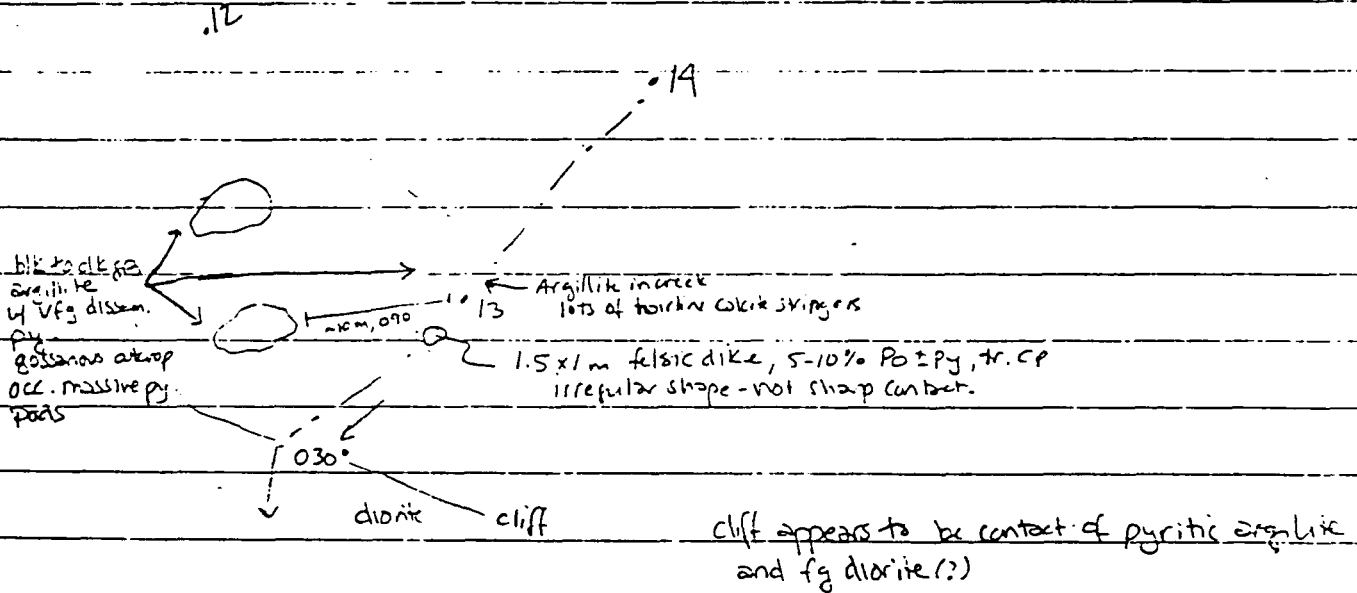 .12
.14
blk to dk grn
argillite
w/ vfg dissem.
py.
gossanous outcrop
occ. massive py.
pods
13
Argillite in creek
lots of hairline calcite stringers
1.5 x 1 m felsic dike, 5-10% Po ± Py, tr. cp
irregular shape - not sharp contact.
030°
diorite
cliff
cliff appears to be contact of pyritic argillite
and fg diorite (?)